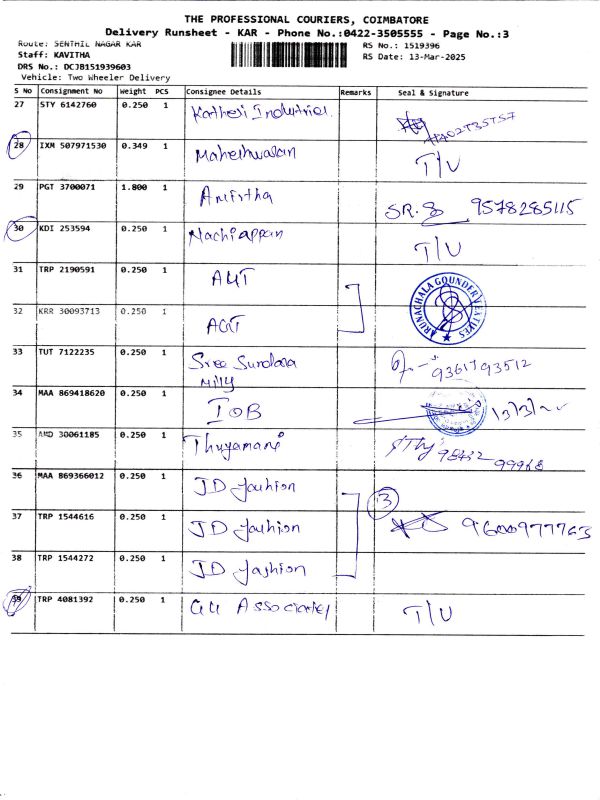 THE PROFESSIONAL COURIERS, COIMBATORE
Delivery Runsheet - KAR - Phone No.:0422-3505555 - Page No.:3
Route: SENTHIL NAGAR KAR
RS No.: 1519396
Staff: KAVITHA
RS Date: 13-Mar-2025
DRS No.: DCJB151939603
Vehicle: Two Wheeler Delivery
S No Consignment No Weight PCS Consignee Details Remarks Seal & Signature
27 STY 6142760 0.250 1 Industries
28 IXM 507971530 0.349 1 Maheshwaran T/U
29 PGT 3700071 1.800 1 Amirtha SR. 9578285115
30 KDI 253594 0.250 1 Nachiappan T/U
31 TRP 2190591 0.250 1
ARUNACHALA GOUNDER
32 KRR 30093713 0.250 1 AGT
33 TUT 7122235 0.250 1 Sree 9361793512
34 MAA 869418620 0.250 1 IOB
35 AMD 30061185 0.250 1 Thuyamani
36 MAA 869366012 0.250 1 JD Fashion
3
37 TRP 1544616 0.250 1 JD Fashion 9600977763
38 TRP 1544272 0.250 1 JD Fashion
39 TRP 4081392 0.250 1 T/U